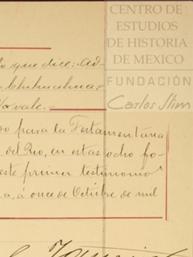 CENTRO DE
ESTUDIOS
DE HISTORIA
DE MEXICO
FUNDACIÓN
Carlos Slim
lo que dice: Ad-
Chihuahua
vale.
vo para la Testamentaria
del Rio, en estas ocho ho-
este primer testimonio
a, á once de Octubre de mil